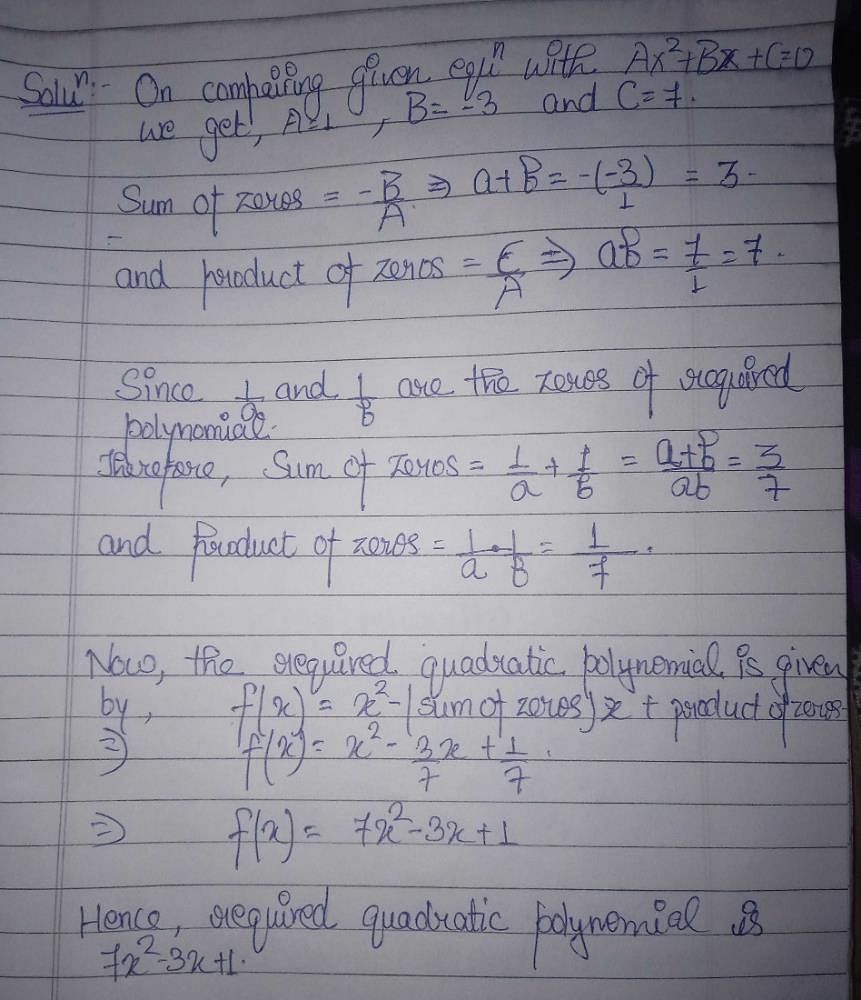 Soluⁿ:- On compairing given equiⁿ with Ax²+Bx+C=0
we get, A=1 , B= -3 and C= 7.
Sum of zeros = -B/A ⇒ a+B = -(-3)/1 = 3.
and product of zeros = C/A ⇒ aB = 7/1 = 7.
Since 1/a and 1/B are the zeros of required
polynomial.
Therefore, Sum of zeros = 1/a + 1/B = a+B/ab = 3/7
and Product of zeros = 1/a · 1/B = 1/7 .
Now, the required quadratic polynomial is given
by, f(x) = x² - (sum of zeros) x + product of zeros.
⇒ f(x) = x² - 3x/7 + 1/7 .
⇒ f(x) = 7x² - 3x + 1
Hence, required quadratic polynomial is
7x² - 3x + 1.